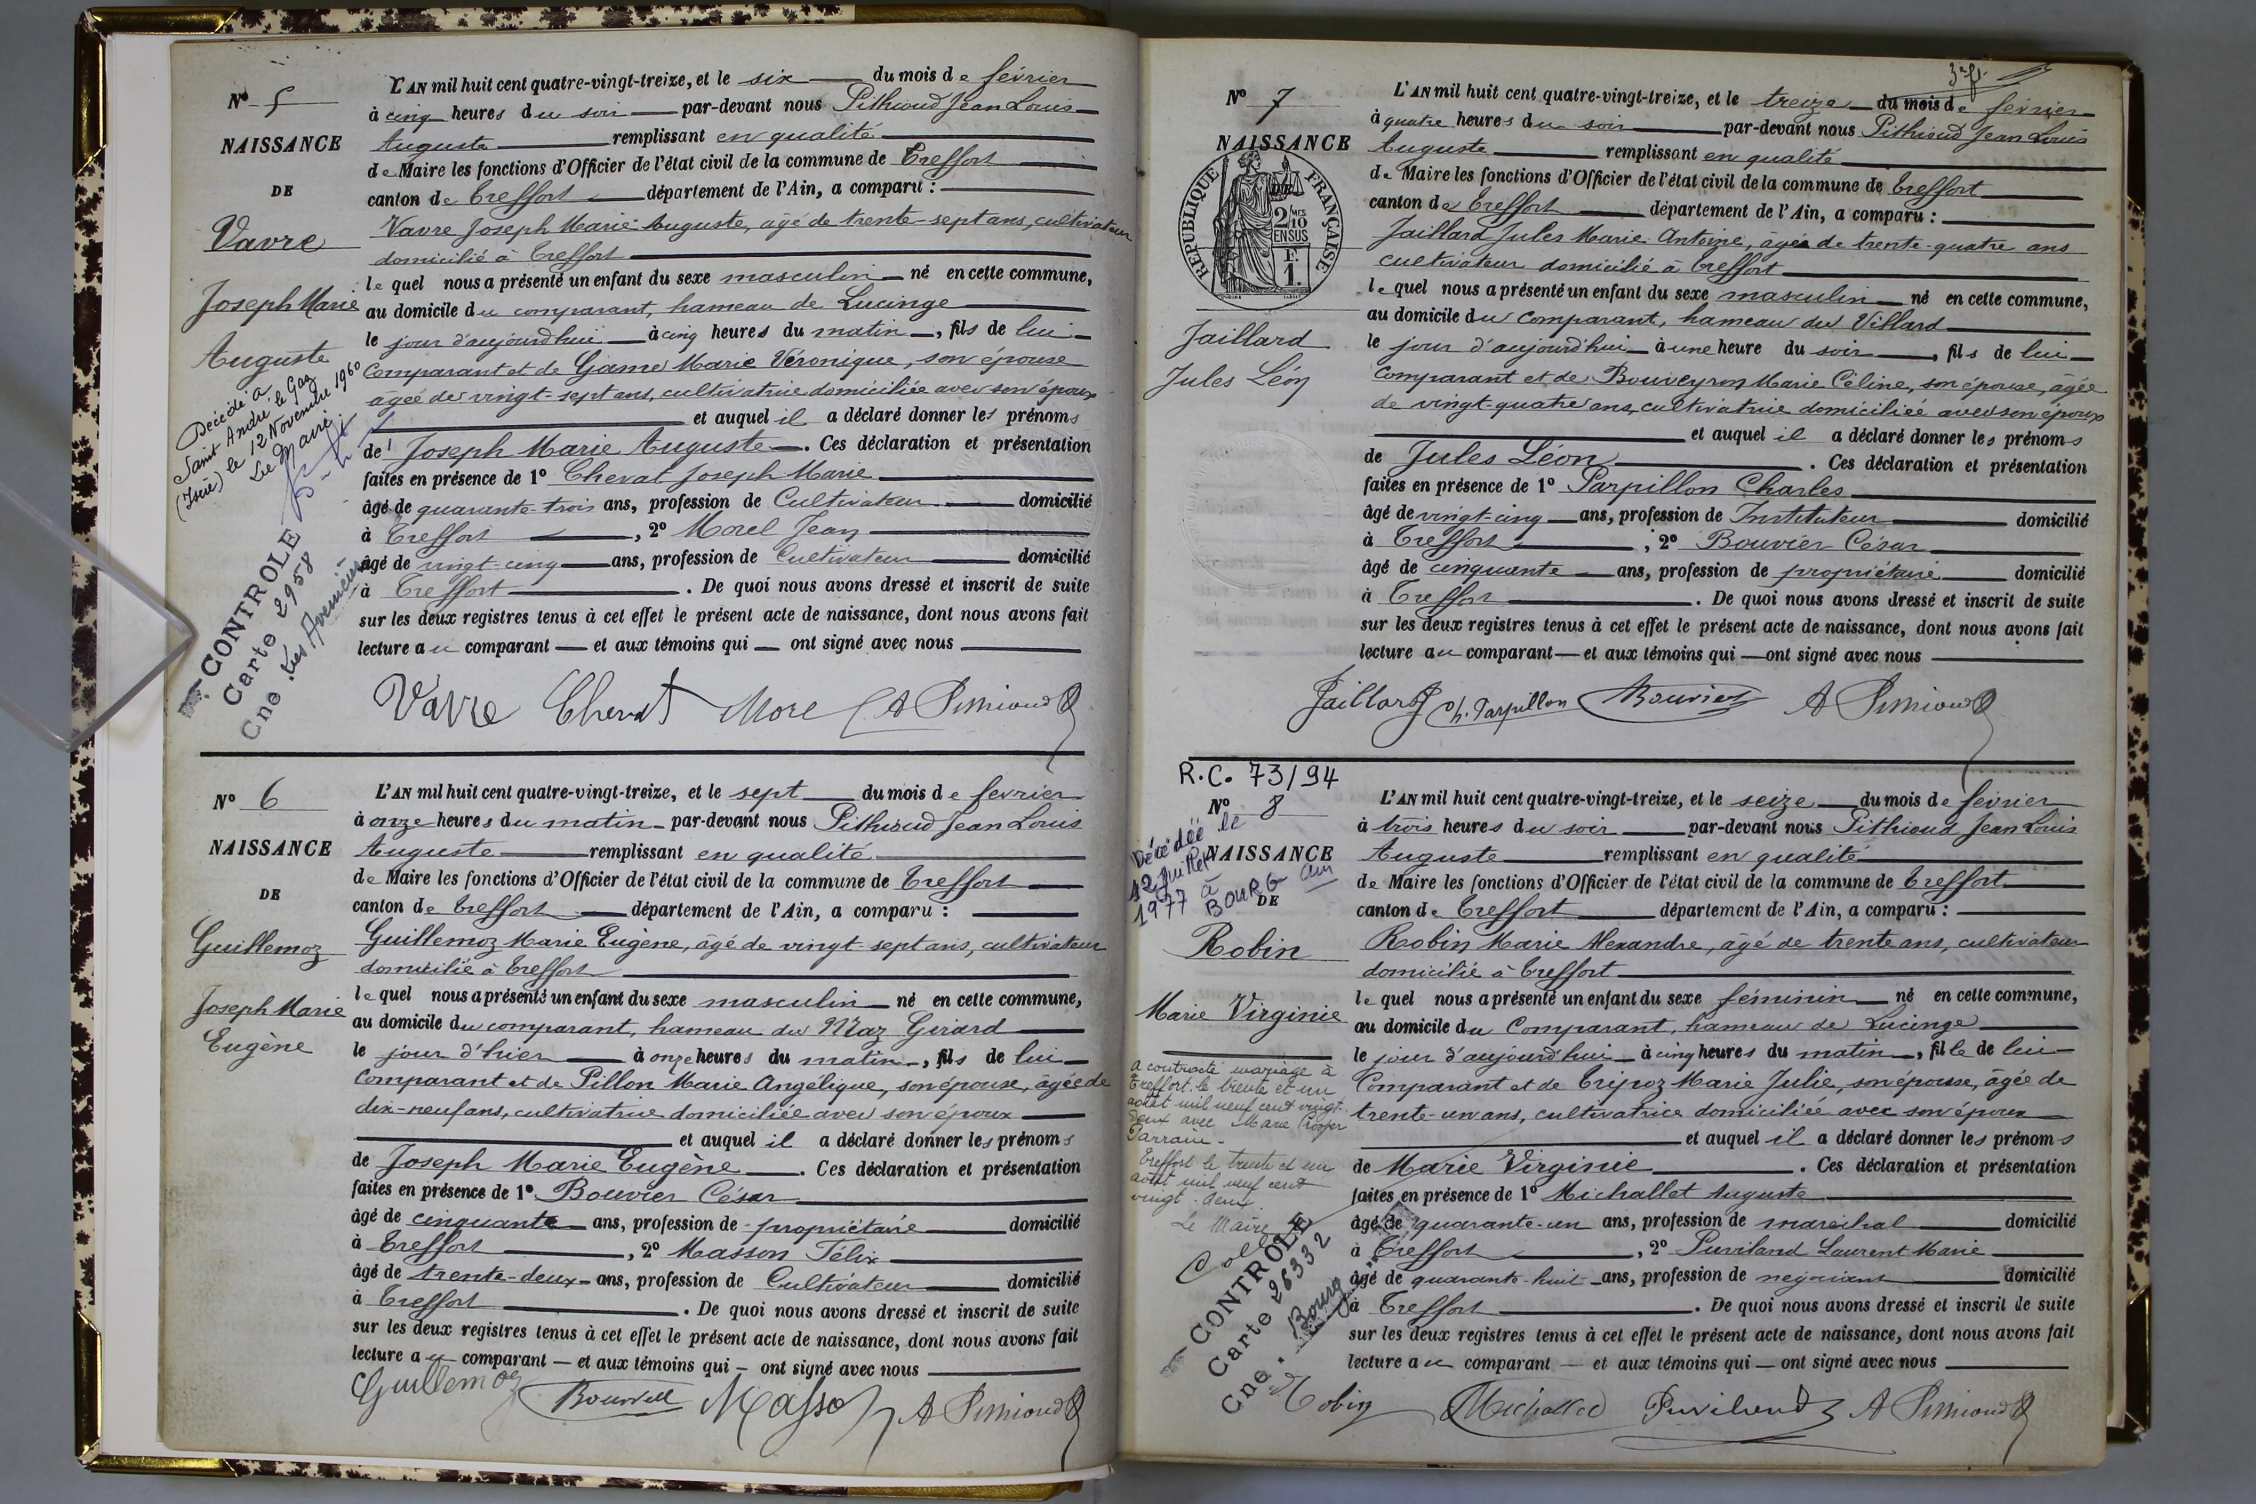 N° 5
NAISSANCE
DE
Vavre
Joseph Marie
Auguste
Décédé à
Saint André le Gaz
(Isère) le 12 Novembre 1960
Le Maire
CONTROLE
Carte 2958
Cne Les Avenières
L'AN mil huit cent quatre-vingt-treize, et le six du mois de février
à cinq heures du soir par-devant nous Pithioud Jean Louis
Auguste remplissant en qualité
de Maire les fonctions d'Officier de l'état civil de la commune de Treffort
canton de Treffort département de l'Ain, a comparu :
Vavre Joseph Marie Auguste, âgé de trente-sept ans, cultivateur
domicilié à Treffort
lequel nous a présenté un enfant du sexe masculin né en cette commune,
au domicile du comparant, hameau de Lucinge
le jour d'aujourd'hui à cinq heures du matin, fils de lui
comparant et de Game Marie Véronique, son épouse
agée de vingt-sept ans, cultivatrice domiciliée avec son époux
et auquel il a déclaré donner les prénoms
de Joseph Marie Auguste. Ces déclaration et présentation
faites en présence de 1° Chevat Joseph Marie
âgé de quarante-trois ans, profession de Cultivateur domicilié
à Treffort, 2° Morel Jean
âgé de vingt-cinq ans, profession de Cultivateur domicilié
à Treffort. De quoi nous avons dressé et inscrit de suite
sur les deux registres tenus à cet effet le présent acte de naissance, dont nous avons fait
lecture au comparant et aux témoins qui ont signé avec nous
Vavre Chevat More A Pithioud
N° 6
NAISSANCE
DE
Guillemoz
Joseph Marie
Eugène
L'AN mil huit cent quatre-vingt-treize, et le sept du mois de fevrier
à onze heures du matin par-devant nous Pithioud Jean Louis
Auguste remplissant en qualité
de Maire les fonctions d'Officier de l'état civil de la commune de Treffort
canton de Treffort département de l'Ain, a comparu :
Guillemoz Marie Eugène, âgé de vingt-sept ans, cultivateur
domicilié à Treffort
lequel nous a présenté un enfant du sexe masculin né en cette commune,
au domicile du comparant, hameau du Maz Girard
le jour d'hier à onze heures du matin, fils de lui
comparant et de Pillon Marie Angélique, son épouse, âgée de
dix-neuf ans, cultivatrice domiciliée avec son époux
et auquel il a déclaré donner les prénoms
de Joseph Marie Eugène. Ces déclaration et présentation
faites en présence de 1° Bouvier César
âgé de cinquante ans, profession de propriétaire domicilié
à Treffort, 2° Masson Félix
âgé de trente-deux ans, profession de Cultivateur domicilié
à Treffort. De quoi nous avons dressé et inscrit de suite
sur les deux registres tenus à cet effet le présent acte de naissance, dont nous avons fait
lecture au comparant et aux témoins qui ont signé avec nous
Guillemoz Bouvier Masson A Pithioud
3e f.
N° 7
NAISSANCE
DE
RÉPUBLIQUE FRANÇAISE
2/10 MES
EN SUS
1 F.
Jaillard
Jules Léon
L'AN mil huit cent quatre-vingt-treize, et le treize du mois de février
à quatre heures du soir par-devant nous Pithioud Jean Louis
Auguste remplissant en qualité
de Maire les fonctions d'Officier de l'état civil de la commune de Treffort
canton de Treffort département de l'Ain, a comparu :
Jaillard Jules Marie Antoine, âgé de trente-quatre ans
cultivateur domicilié à Treffort
lequel nous a présenté un enfant du sexe masculin né en cette commune,
au domicile du comparant, hameau du Villard
le jour d'aujourd'hui à une heure du soir, fils de lui
comparant et de Bouveyron Marie Céline, son épouse, âgée
de vingt-quatre ans, cultivatrice domiciliée avec son époux
et auquel il a déclaré donner les prénoms
de Jules Léon. Ces déclaration et présentation
faites en présence de 1° Parpillon Charles
âgé de vingt-cinq ans, profession de Instituteur domicilié
à Treffort, 2° Bouvier César
âgé de cinquante ans, profession de propriétaire domicilié
à Treffort. De quoi nous avons dressé et inscrit de suite
sur les deux registres tenus à cet effet le présent acte de naissance, dont nous avons fait
lecture au comparant et aux témoins qui ont signé avec nous
Jaillard Ch. Parpillon Bouvier A Pithioud
R.C. 73/94
N° 8
NAISSANCE
DE
Décédée le
12 Juillet
1977 à
BOURG Ain
Robin
Marie Virginie
A contracté mariage à
Treffort, le trente et un
août mil neuf cent vingt-
deux avec Marie Prosper
Parrain.
Treffort le trente et un
août mil neuf cent
vingt-deux
Le Maire
CONTROLE
Carte 2633 2
Cne. Bourg
L'AN mil huit cent quatre-vingt-treize, et le seize du mois de février
à trois heures du soir par-devant nous Pithioud Jean Louis
Auguste remplissant en qualité
de Maire les fonctions d'Officier de l'état civil de la commune de Treffort
canton de Treffort département de l'Ain, a comparu :
Robin Marie Alexandre, âgé de trente ans, cultivateur
domicilié à Treffort
lequel nous a présenté un enfant du sexe féminin né en cette commune,
au domicile du Comparant, hameau de Lucinge
le jour d'aujourd'hui à cinq heures du matin, fille de lui
Comparant et de Tripoz Marie Julie, son épouse, âgée de
trente-un ans, cultivatrice domiciliée avec son époux
et auquel il a déclaré donner les prénoms
de Marie Virginie. Ces déclaration et présentation
faites en présence de 1° Michallet Auguste
âgé de quarante-un ans, profession de maréchal domicilié
à Treffort, 2° Puviland Laurent Marie
âgé de quarante-huit ans, profession de négociant domicilié
à Treffort. De quoi nous avons dressé et inscrit de suite
sur les deux registres tenus à cet effet le présent acte de naissance, dont nous avons fait
lecture au comparant et aux témoins qui ont signé avec nous
Robin Michallet Puviland A Pithioud